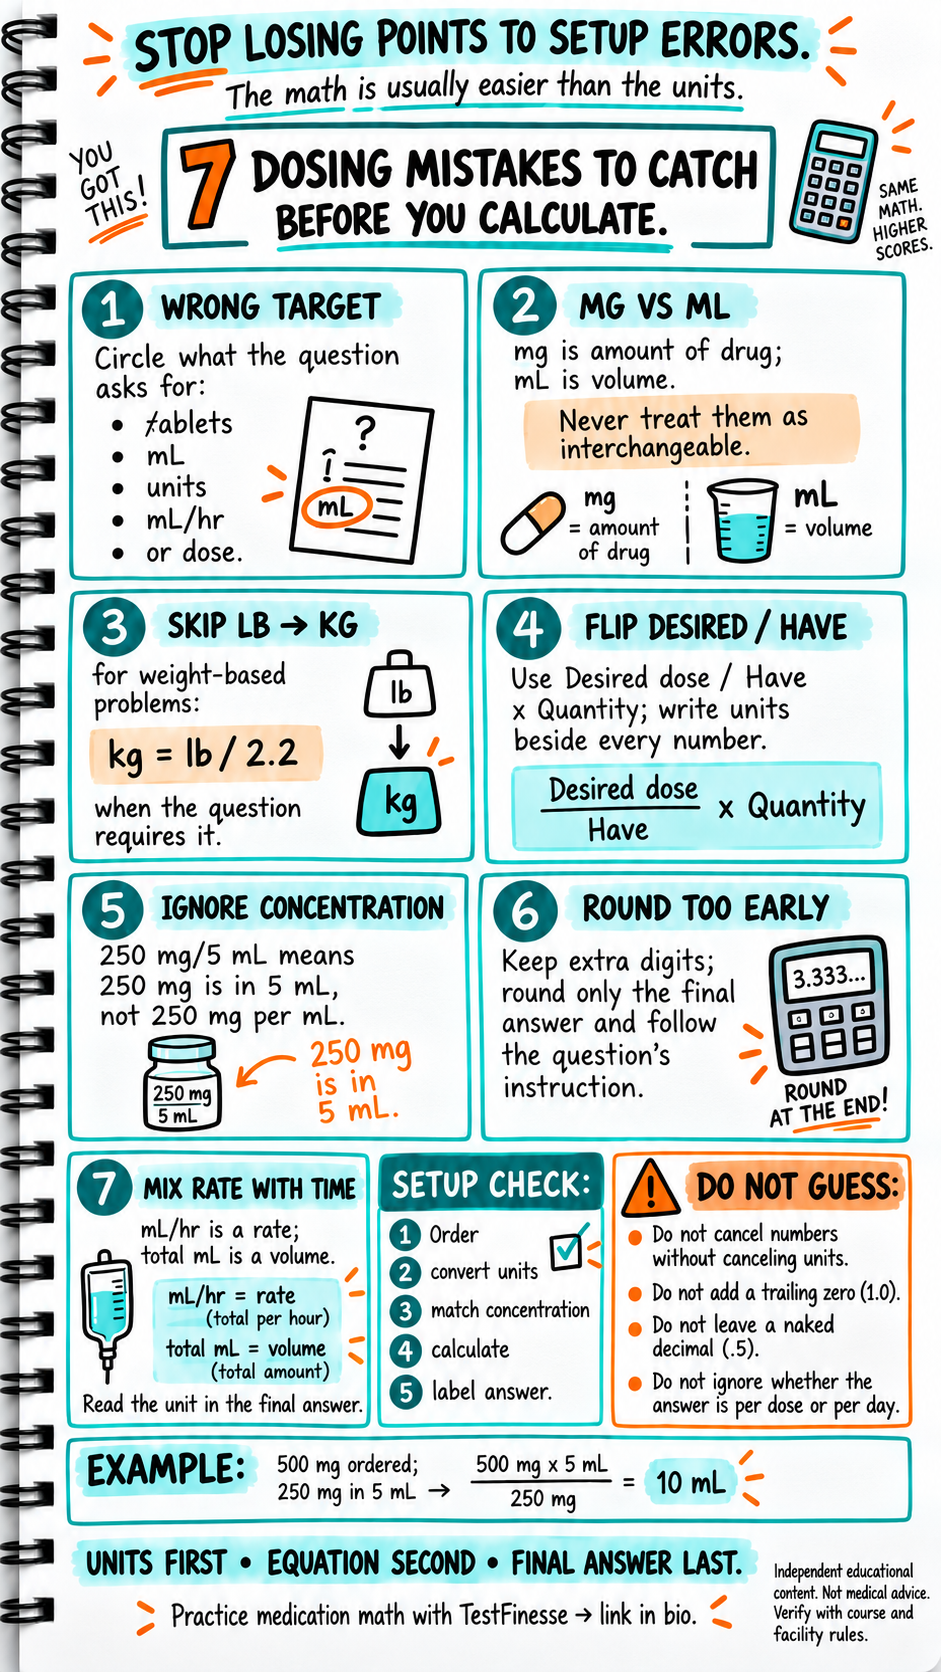 STOP LOSING POINTS TO SETUP ERRORS.
The math is usually easier than the units.
YOU
GOT
THIS!
7 DOSING MISTAKES TO CATCH
BEFORE YOU CALCULATE.
SAME
MATH.
HIGHER
SCORES.
1 WRONG TARGET
Circle what the question
asks for:
• tablets
• mL
• units
• mL/hr
• or dose.
?
mL
2 MG VS ML
mg is amount of drug;
mL is volume.
Never treat them as
interchangeable.
mg
= amount
of drug
mL
= volume
3 SKIP LB → KG
for weight-based
problems:
kg = lb / 2.2
when the question
requires it.
lb
kg
4 FLIP DESIRED / HAVE
Use Desired dose / Have
x Quantity; write units
beside every number.
Desired dose
Have
x Quantity
5 IGNORE CONCENTRATION
250 mg/5 mL means
250 mg is in 5 mL,
not 250 mg per mL.
250 mg
5 mL
250 mg
is in
5 mL.
6 ROUND TOO EARLY
Keep extra digits;
round only the final
answer and follow
the question's
instruction.
3.333...
ROUND
AT THE END!
7 MIX RATE WITH TIME
mL/hr is a rate;
total mL is a volume.
mL/hr = rate
(total per hour)
total mL = volume
(total amount)
Read the unit in the final answer.
SETUP CHECK:
1 Order
2 convert units
3 match concentration
4 calculate
5 label answer.
! DO NOT GUESS:
• Do not cancel numbers
without canceling units.
• Do not add a trailing zero (1.0).
• Do not leave a naked
decimal (.5).
• Do not ignore whether the
answer is per dose or per day.
EXAMPLE:
500 mg ordered;
250 mg in 5 mL →
500 mg x 5 mL
250 mg
= 10 mL
UNITS FIRST • EQUATION SECOND • FINAL ANSWER LAST.
Practice medication math with TestFinesse → link in bio.
Independent educational
content. Not medical advice.
Verify with course and
facility rules.